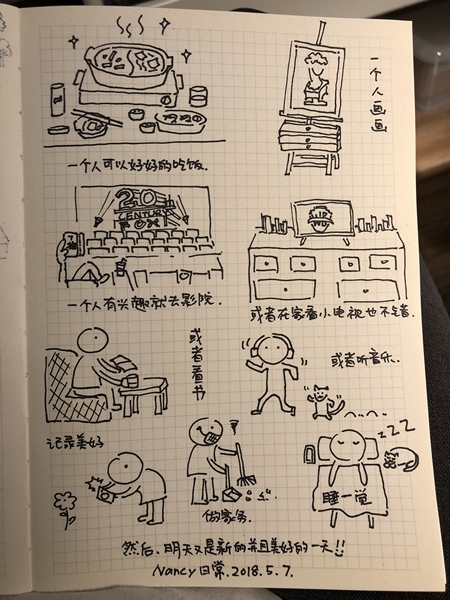 一个人画画
一个人可以好好的吃饭.
20
CENTURY
FOX
一个人有兴趣就去影院.
或者在家看小电视也不定着.
或者看书
或者听音乐.
记录美好
做家务.
zZZZ
睡一觉
然后、明天又是新的并且美好的一天!!
Nancy日常.2018.5.7.